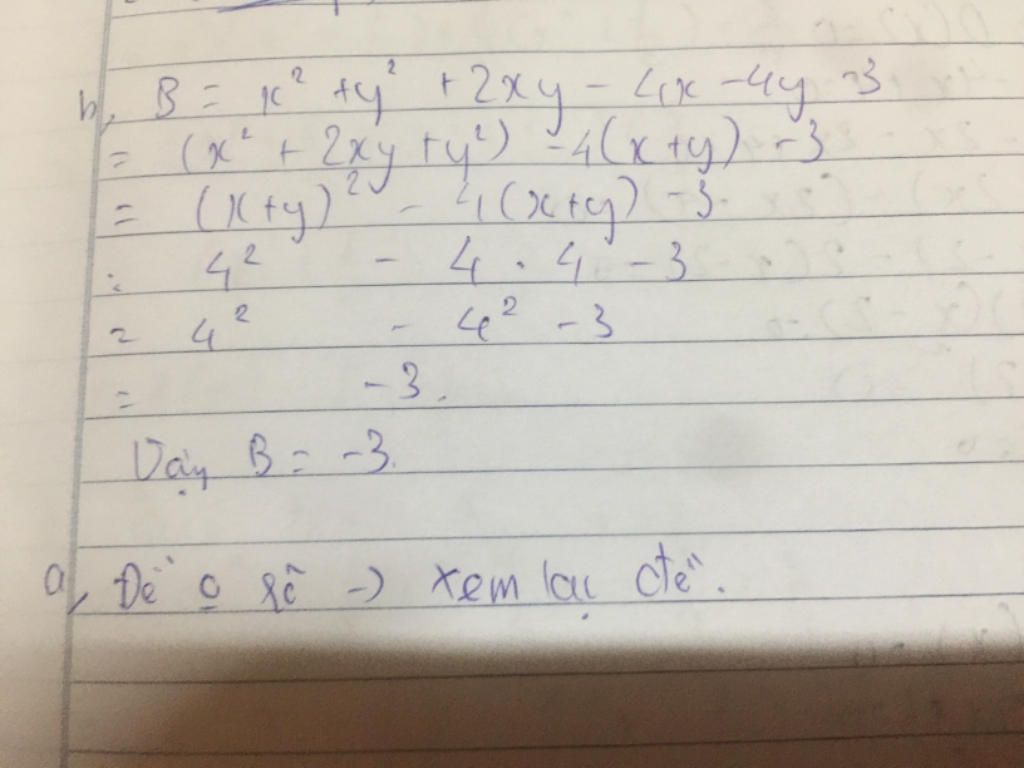 b, B = x² + y² + 2xy - 4x - 4y - 3
= (x² + 2xy + y²) - 4(x+y) - 3
= (x+y)² - 4(x+y) - 3
= 4² - 4 . 4 - 3
= 4² - 4² - 3
= -3.
Vậy B = -3.
a, Đề → xem lại đề.